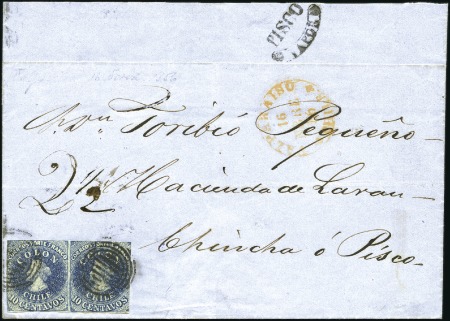 PISCO
VAPOR
VALPARAISO
16
Sr. Dn. Toribio Pequeño
2 1/2 Hacienda de Laran
Chincha ó Pisco
COLON
CHILE
10 CENTAVOS
COLON
CHILE
10 CENTAVOS